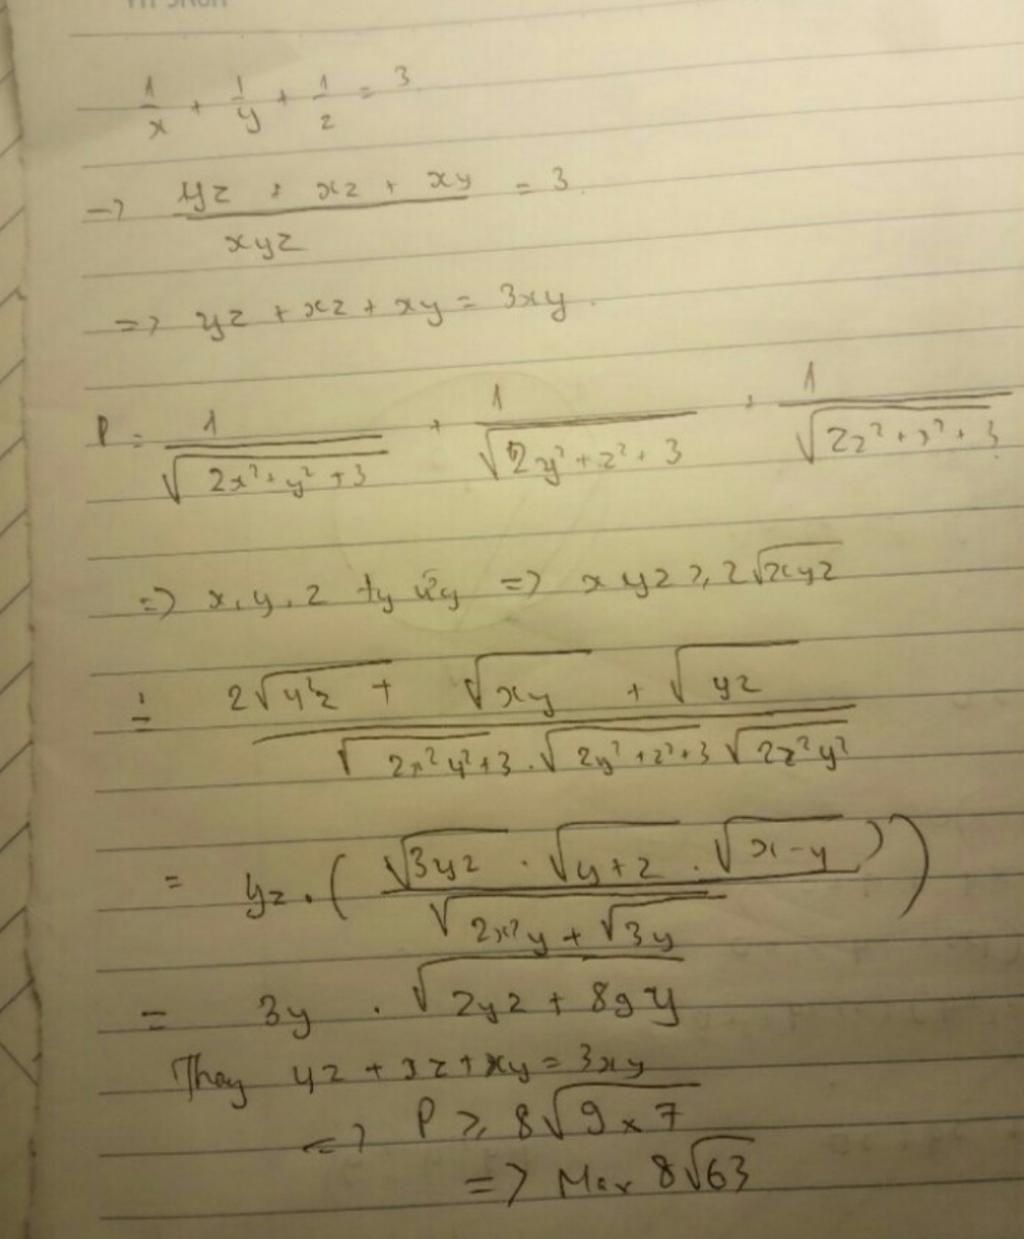 1/x + 1/y + 1/z = 3
→ (yz + xz + xy)/xyz = 3.
=> yz + xz + xy = 3xy.
P = 1/√(2x² + y² + 3) + 1/√(2y² + z² + 3) + 1/√(2z² + x² + 3)
=> x, y, z tùy => xyz ≥ 2√xyz
= (2√y²z + √xy + √yz)/(√(2x²y² + 3) . √(2y² + z² + 3) √(2z²y²))
= yz . ((√3yz . √(y+z) . √(x-y)))/(√(2x²y + √3y)))
= 3y . √(2yz + 89y)
Thay yz + xz + xy = 3xy
=> P ≥ 8√(9 x 7)
=> Max 8√63